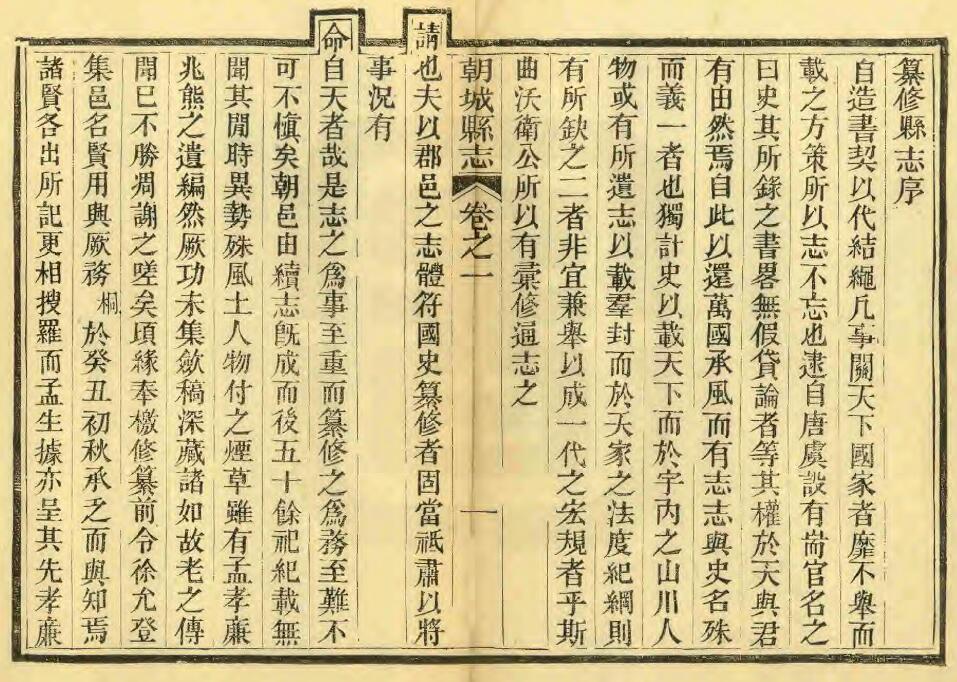 纂修縣志序
自造書契以代結繩凡事關天下國家者靡不舉而
載之方策所以志不忘也逮自唐虞設有耑官名之
曰史其所錄之書畧無假貸論者等其權於天與君
有由然焉自此以還萬國承風而有志志與史名殊
而義一者也獨計史以載天下而於宇內之山川人
物或有所遺志以載羣封而於天家之法度紀綱則
有所缺之二者非宜兼舉以成一代之宏規者乎斯
曲沃衛公所以有彚修通志之
朝城縣志 卷之一 一
請也夫以郡邑之志體符國史纂修者固當祗肅以將
事況有
命自天者哉是志之爲事至重而纂修之爲務至難不
可不愼矣朝邑由續志旣成而後五十餘祀紀載無
聞其閒時異勢殊風土人物付之煙草雖有孟孝廉
兆熊之遺編然厥功未集斂稿深藏諸如故老之傳
聞已不勝凋謝之嗟矣頃緣奉檄修纂前令徐允登
集邑名賢用興厥務桐於癸丑初秋承乏而與知焉
諸賢各出所記更相搜羅而孟生據亦呈其先孝廉